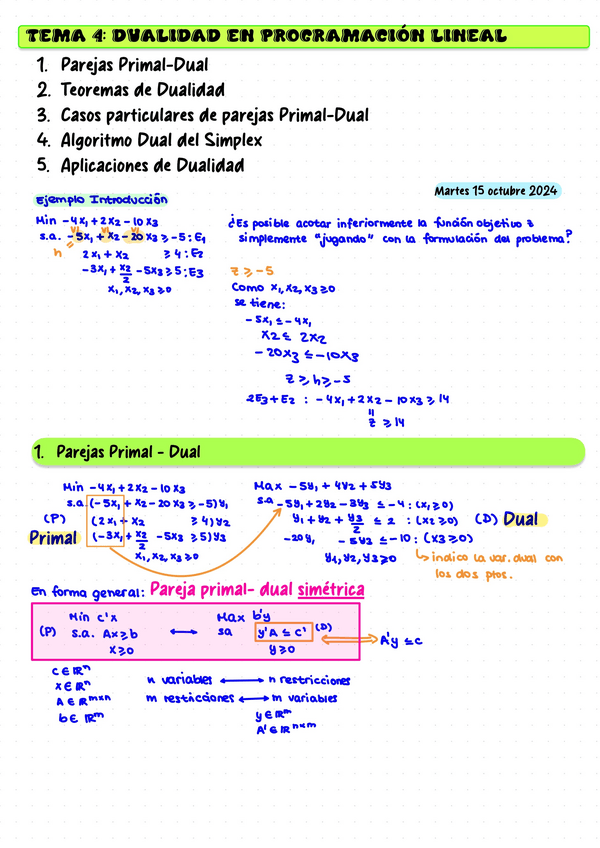 TEMA 4: DUALIDAD EN PROGRAMACIÓN LINEAL
1. Parejas Primal-Dual
2. Teoremas de Dualidad
3. Casos particulares de parejas Primal-Dual
4. Algoritmo Dual del Simplex
5. Aplicaciones de Dualidad
Martes 15 octubre 2024
Ejemplo Introducción
Min -4x₁ + 2x₂ - 10x₃
s.a. -5x₁ + x₂ - 20x₃ ≥ -5 : E₁
h 2x₁ + x₂ ≥ 4 : E₂
-3x₁ + x₂/2 - 5x₃ ≥ 5 : E₃
x₁, x₂, x₃ ≥ 0
¿Es posible acotar inferiormente la función objetivo z
simplemente "jugando" con la formulación del problema?
z ≥ -5
Como x₁, x₂, x₃ ≥ 0
se tiene:
-5x₁ ≤ -4x₁
x₂ ≤ 2x₂
-20x₃ ≤ -10x₃
z ≥ h ≥ -5
2E₃ + E₂ : -4x₁ + 2x₂ - 10x₃ ≥ 14
"
z ≥ 14
1. Parejas Primal - Dual
Min -4x₁ + 2x₂ - 10x₃
s.a. (-5x₁ + x₂ - 20x₃ ≥ -5) y₁
(P) (2x₁ + x₂ ≥ 4) y₂
Primal (-3x₁ + x₂/2 - 5x₃ ≥ 5) y₃
x₁, x₂, x₃ ≥ 0
Max -5y₁ + 4y₂ + 5y₃
s.a -5y₁ + 2y₂ - 3y₃ ≤ -4 : (x₁ ≥ 0)
y₁ + y₂ + y₃/2 ≤ 2 : (x₂ ≥ 0) (D) Dual
-20y₁ - 5y₃ ≤ -10 : (x₃ ≥ 0)
y₁, y₂, y₃ ≥ 0
indico la var. dual con
los dos ptos.
En forma general: Pareja primal- dual simétrica
Min c'x Max b'y
(P) s.a. Ax ≥ b ⟷ sa y'A ≤ c' (D) ⟺ A'y ≤ c
x ≥ 0 y ≥ 0
c ∈ ℝⁿ
x ∈ ℝⁿ
A ∈ ℝᵐˣⁿ
b ∈ ℝᵐ
n variables ⟷ n restricciones
m restricciones ⟷ m variables
y ∈ ℝᵐ
A' ∈ ℝⁿˣᵐ